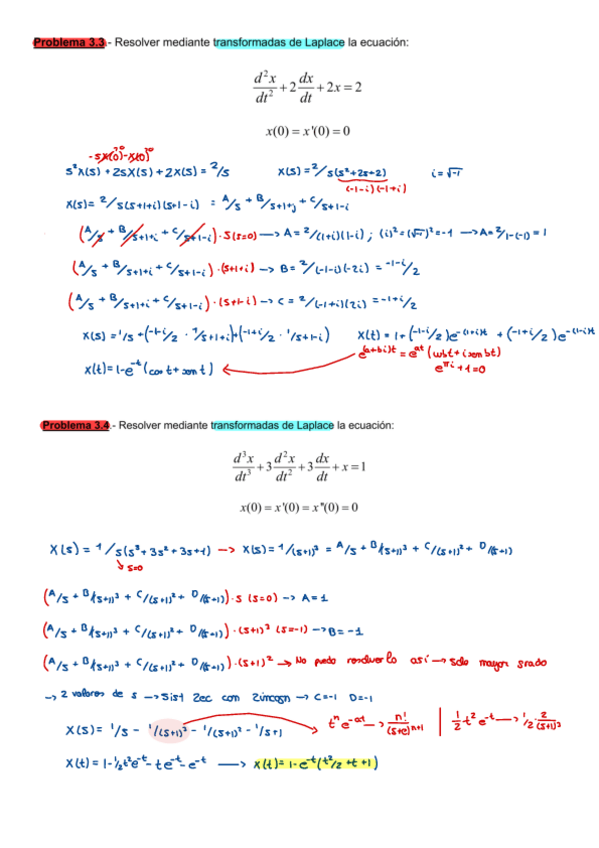 Problema 3.3.- Resolver mediante transformadas de Laplace la ecuación:
d²x/dt² + 2 dx/dt + 2x = 2
x(0) = x'(0) = 0
- sx(0) - x(0)
s²X(s) + 2sX(s) + 2X(s) = 2/s X(s) = 2/s(s²+2s+2) i = √-1
(-1-i)(-1+i)
X(s) = 2/s(s+1+i)(s+1-i) = A/s + B/s+1+j + C/s+1-i
(A/s + B/s+1+i + C/s+1-i) · s (s=0) → A = 2/(1+i)(1-i) ; (i)² = (√-1)² = -1 → A = 2/1-(-1) = 1
(A/s + B/s+1+i + C/s+1-i) · (s+1+i) → B = 2/(-1-i)(-2i) = -1-i/2
(A/s + B/s+1+i + C/s+1-i) · (s+1-i) → C = 2/(-1+i)(2i) = -1+i/2
X(s) = 1/s + (-1-i/2 · 1/s+1+i) + (-1+i/2 · 1/s+1-i) X(t) = 1 + (-1-i/2) e^-(1+i)t + (-1+i/2) e^-(1-i)t
e^(a+bi)t = e^at (cos bt + i sen bt)
x(t) = 1 - e^-t (cos t + sen t) e^πi + 1 = 0
Problema 3.4.- Resolver mediante transformadas de Laplace la ecuación:
d³x/dt³ + 3 d²x/dt² + 3 dx/dt + x = 1
x(0) = x'(0) = x''(0) = 0
X(s) = 1/s(s³+3s²+3s+1) → X(s) = 1/(s+1)³ = A/s + B/(s+1)³ + C/(s+1)² + D/(s+1)
s=0
(A/s + B/(s+1)³ + C/(s+1)² + D/(s+1)) · s (s=0) → A = 1
(A/s + B/(s+1)³ + C/(s+1)² + D/(s+1)) · (s+1)³ (s=-1) → B = -1
(A/s + B/(s+1)³ + C/(s+1)² + D/(s+1)) · (s+1)² → No puedo resolverlo así → Solo mayor grado
→ 2 valores de s → Sist 2ec con 2incogn → C=-1 D=-1
X(s) = 1/s - 1/(s+1)³ - 1/(s+1)² - 1/s+1 t^n e^-at → n!/(s+a)^n+1 | 1/2 t² e^-t → 1/2 · 2/(s+1)³
X(t) = 1 - 1/2 t² e^-t - t e^-t - e^-t → x(t) = 1 - e^-t (t²/2 + t + 1)